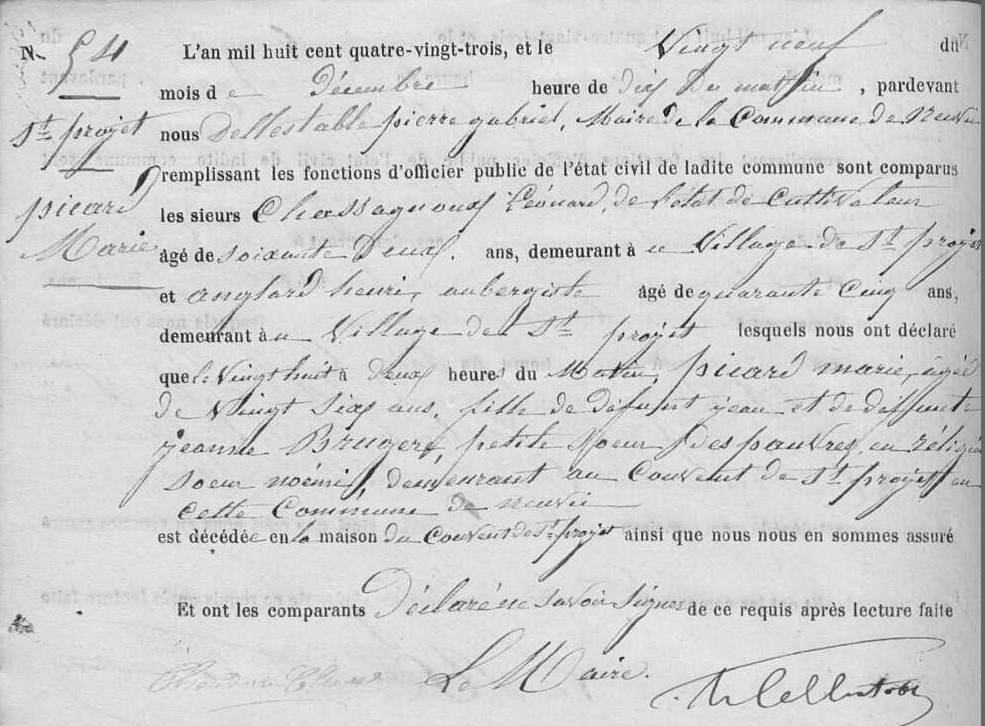 N. 54
St projet
picard
Marie
L'an mil huit cent quatre-vingt-trois, et le Vingt neuf du
mois de Décembre heure de dix Du matin, pardevant
nous Dellestable pierre gabriel, Maire de la Commune de Neuvic
remplissant les fonctions d'officier public de l'état civil de ladite commune sont comparus
les sieurs Chassagnoux Léonard, de l'état de Cultivateur
âgé de soixante Deux. ans, demeurant à u Village de St projet
et anglard henri, aubergiste âgé de quarante Cinq ans,
demeurant à u Village de St projet lesquels nous ont déclaré
que le Vingt huit à deux heures du Matin, picard marie, agée
de Vingt Six ans, fille de défunt jean et de deffunte
jeanne Brugere, petite Soeur des pauvres, en réligion
soeur noémi, demeurant au Couvent de St projet en
cette Commune de neuvic
est décédée en la maison du Couvent de St projet ainsi que nous nous en sommes assuré
Et ont les comparants Déclaré ne savoir signer de ce requis après lecture faite
Le Maire.
Dellestable